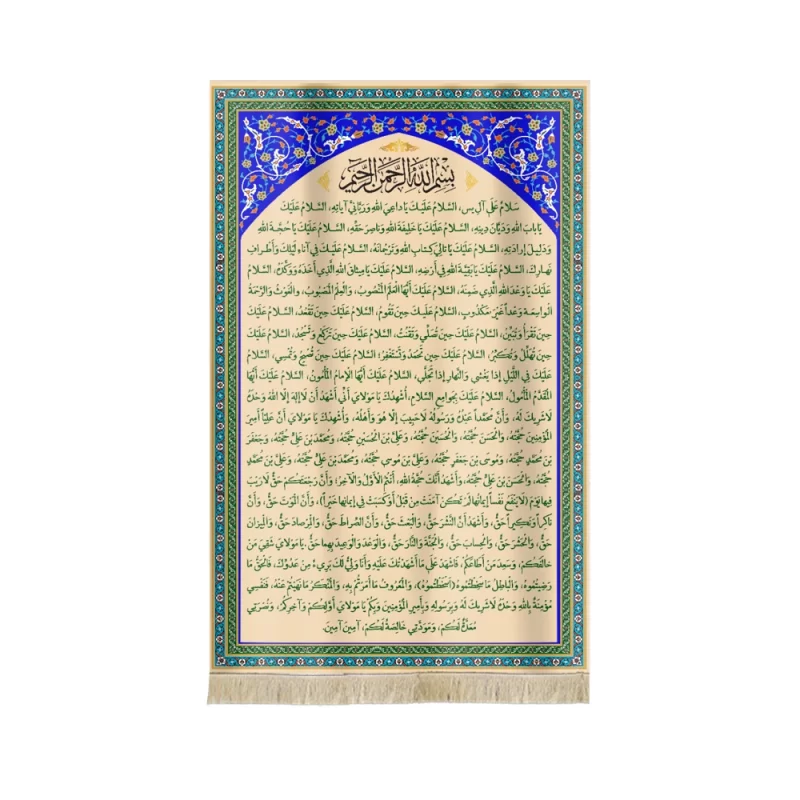 بسم الله الرحمن الرحیم
سَلامٌ عَلى آلِ يس، السَّلامُ عَلَيْكَ يا داعِيَ اللهِ وَرَبّانِيَّ آياتِهِ، السَّلامُ عَلَيْكَ
يا بابَ اللهِ وَدَيّانَ دينِهِ، السَّلامُ عَلَيْكَ يا خَليفَةَ اللهِ وَناصِرَ حَقِّهِ، السَّلامُ عَلَيْكَ يا حُجَّةَ اللهِ
وَدَليلَ إرادَتِهِ، السَّلامُ عَلَيْكَ يا تالِيَ كِتابِ اللهِ وَتَرْجُمانَهُ، السَّلامُ عَلَيْكَ في آناءِ لَيْلِكَ وَأطْرافِ
نَهارِكَ، السَّلامُ عَلَيْكَ يا بَقِيَّةَ اللهِ في أرْضِهِ، السَّلامُ عَلَيْكَ يا ميثاقَ اللهِ الَّذي أخَذَهُ وَوَكَّدَهُ، السَّلامُ
عَلَيْكَ يا وَعْدَ اللهِ الَّذي ضَمِنَهُ، السَّلامُ عَلَيْكَ أيُّهَا الْعَلَمُ الْمَنْصُوبُ، وَالْعِلْمُ الْمَصْبُوبُ، وَالْغَوْثُ وَالرَّحْمَةُ
الْواسِعَةُ وَعْداً غَيْرَ مَكْذُوبٍ، السَّلامُ عَلَيْكَ حينَ تَقُومُ، السَّلامُ عَلَيْكَ حينَ تَقْعُدُ، السَّلامُ عَلَيْكَ
حينَ تَقْرَأُ وَتُبَيِّنُ، السَّلامُ عَلَيْكَ حينَ تُصَلّي وَتَقْنُتُ، السَّلامُ عَلَيْكَ حينَ تَرْكَعُ وَتَسْجُدُ، السَّلامُ عَلَيْكَ
حينَ تُهَلِّلُ وَتُكَبِّرُ، السَّلامُ عَلَيْكَ حينَ تَحْمَدُ وَتَسْتَغْفِرُ، السَّلامُ عَلَيْكَ حينَ تُصْبِحُ وَتُمْسي، السَّلامُ
عَلَيْكَ فِي اللَّيْلِ إذا يَغْشى وَالنَّهارِ إذا تَجَلّى، السَّلامُ عَلَيْكَ أيُّهَا الإمامُ الْمَأْمُونُ، السَّلامُ عَلَيْكَ أيُّهَا
الْمُقَدَّمُ الْمَأْمُولُ، السَّلامُ عَلَيْكَ بِجَوامِعِ السَّلامِ، أُشْهِدُكَ يا مَوْلايَ أنّي أشْهَدُ أنْ لا إلهَ إلَّا اللهُ وَحْدَهُ
لا شَريكَ لَهُ، وَأنَّ مُحَمَّداً عَبْدُهُ وَرَسُولُهُ لا حَبيبَ إلّا هُوَ وَأهْلُهُ، وَأُشْهِدُكَ يا مَوْلايَ أنَّ عَلِيّاً أميرَ
الْمُؤْمِنينَ حُجَّتُهُ، وَالْحَسَنَ حُجَّتُهُ، وَالْحُسَيْنَ حُجَّتُهُ، وَعَلِيَّ بْنَ الْحُسَيْنِ حُجَّتُهُ، وَمُحَمَّدَ بْنَ عَلِيٍّ حُجَّتُهُ، وَجَعْفَرَ
بْنَ مُحَمَّدٍ حُجَّتُهُ، وَمُوسَى بْنَ جَعْفَرٍ حُجَّتُهُ، وَعَلِيَّ بْنَ مُوسى حُجَّتُهُ، وَمُحَمَّدَ بْنَ عَلِيٍّ حُجَّتُهُ، وَعَلِيَّ بْنَ مُحَمَّدٍ
حُجَّتُهُ، وَالْحَسَنَ بْنَ عَلِيٍّ حُجَّتُهُ، وَأشْهَدُ أنَّكَ حُجَّةُ اللهِ، أنْتُمُ الأوَّلُ وَالآخِرُ، وَأنَّ رَجْعَتَكُمْ حَقٌّ لا رَيْبَ
فيها يَوْمَ (لا يَنْفَعُ نَفْساً إيمانُها لَمْ تَكُنْ آمَنَتْ مِنْ قَبْلُ أوْ كَسَبَتْ في إيمانِها خَيْراً)، وَأنَّ الْمَوْتَ حَقٌّ، وَأنَّ
ناكِراً وَنَكيراً حَقٌّ، وَأشْهَدُ أنَّ النَّشْرَ حَقٌّ، وَالْبَعْثَ حَقٌّ، وَأنَّ الصِّراطَ حَقٌّ، وَالْمِرْصادَ حَقٌّ، وَالْميزانَ
حَقٌّ، وَالْحَشْرَ حَقٌّ، وَالْحِسابَ حَقٌّ، وَالْجَنَّةَ وَالنّارَ حَقٌّ، وَالْوَعْدَ وَالْوَعيدَ بِهِما حَقٌّ. يا مَوْلايَ شَقِيَ مَنْ
خالَفَكُمْ، وَسَعِدَ مَنْ أطاعَكُمْ، فَاشْهَدْ عَلى ما أشْهَدْتُكَ عَلَيْهِ وَأنَا وَلِيٌّ لَكَ بَريءٌ مِنْ عَدُوِّكَ، فَالْحَقُّ ما
رَضيتُمُوهُ، وَالْباطِلُ ما سَخِطْتُمُوهُ (اسخطتموه)، وَالْمَعْرُوفُ ما أمَرْتُمْ بِهِ، وَالْمُنْكَرُ ما نَهَيْتُمْ عَنْهُ، فَنَفْسي
مُؤْمِنَةٌ بِاللهِ وَحْدَهُ لا شَريكَ لَهُ وَبِرَسُولِهِ وَبِأميرِ الْمُؤْمِنينَ وَبِكُمْ يا مَوْلايَ أوَّلِكُمْ وَآخِرِكُمْ، وَنُصْرَتي
مُعَدَّةٌ لَكُمْ، وَمَوَدَّتي خالِصَةٌ لَكُمْ، آمينَ آمينَ.